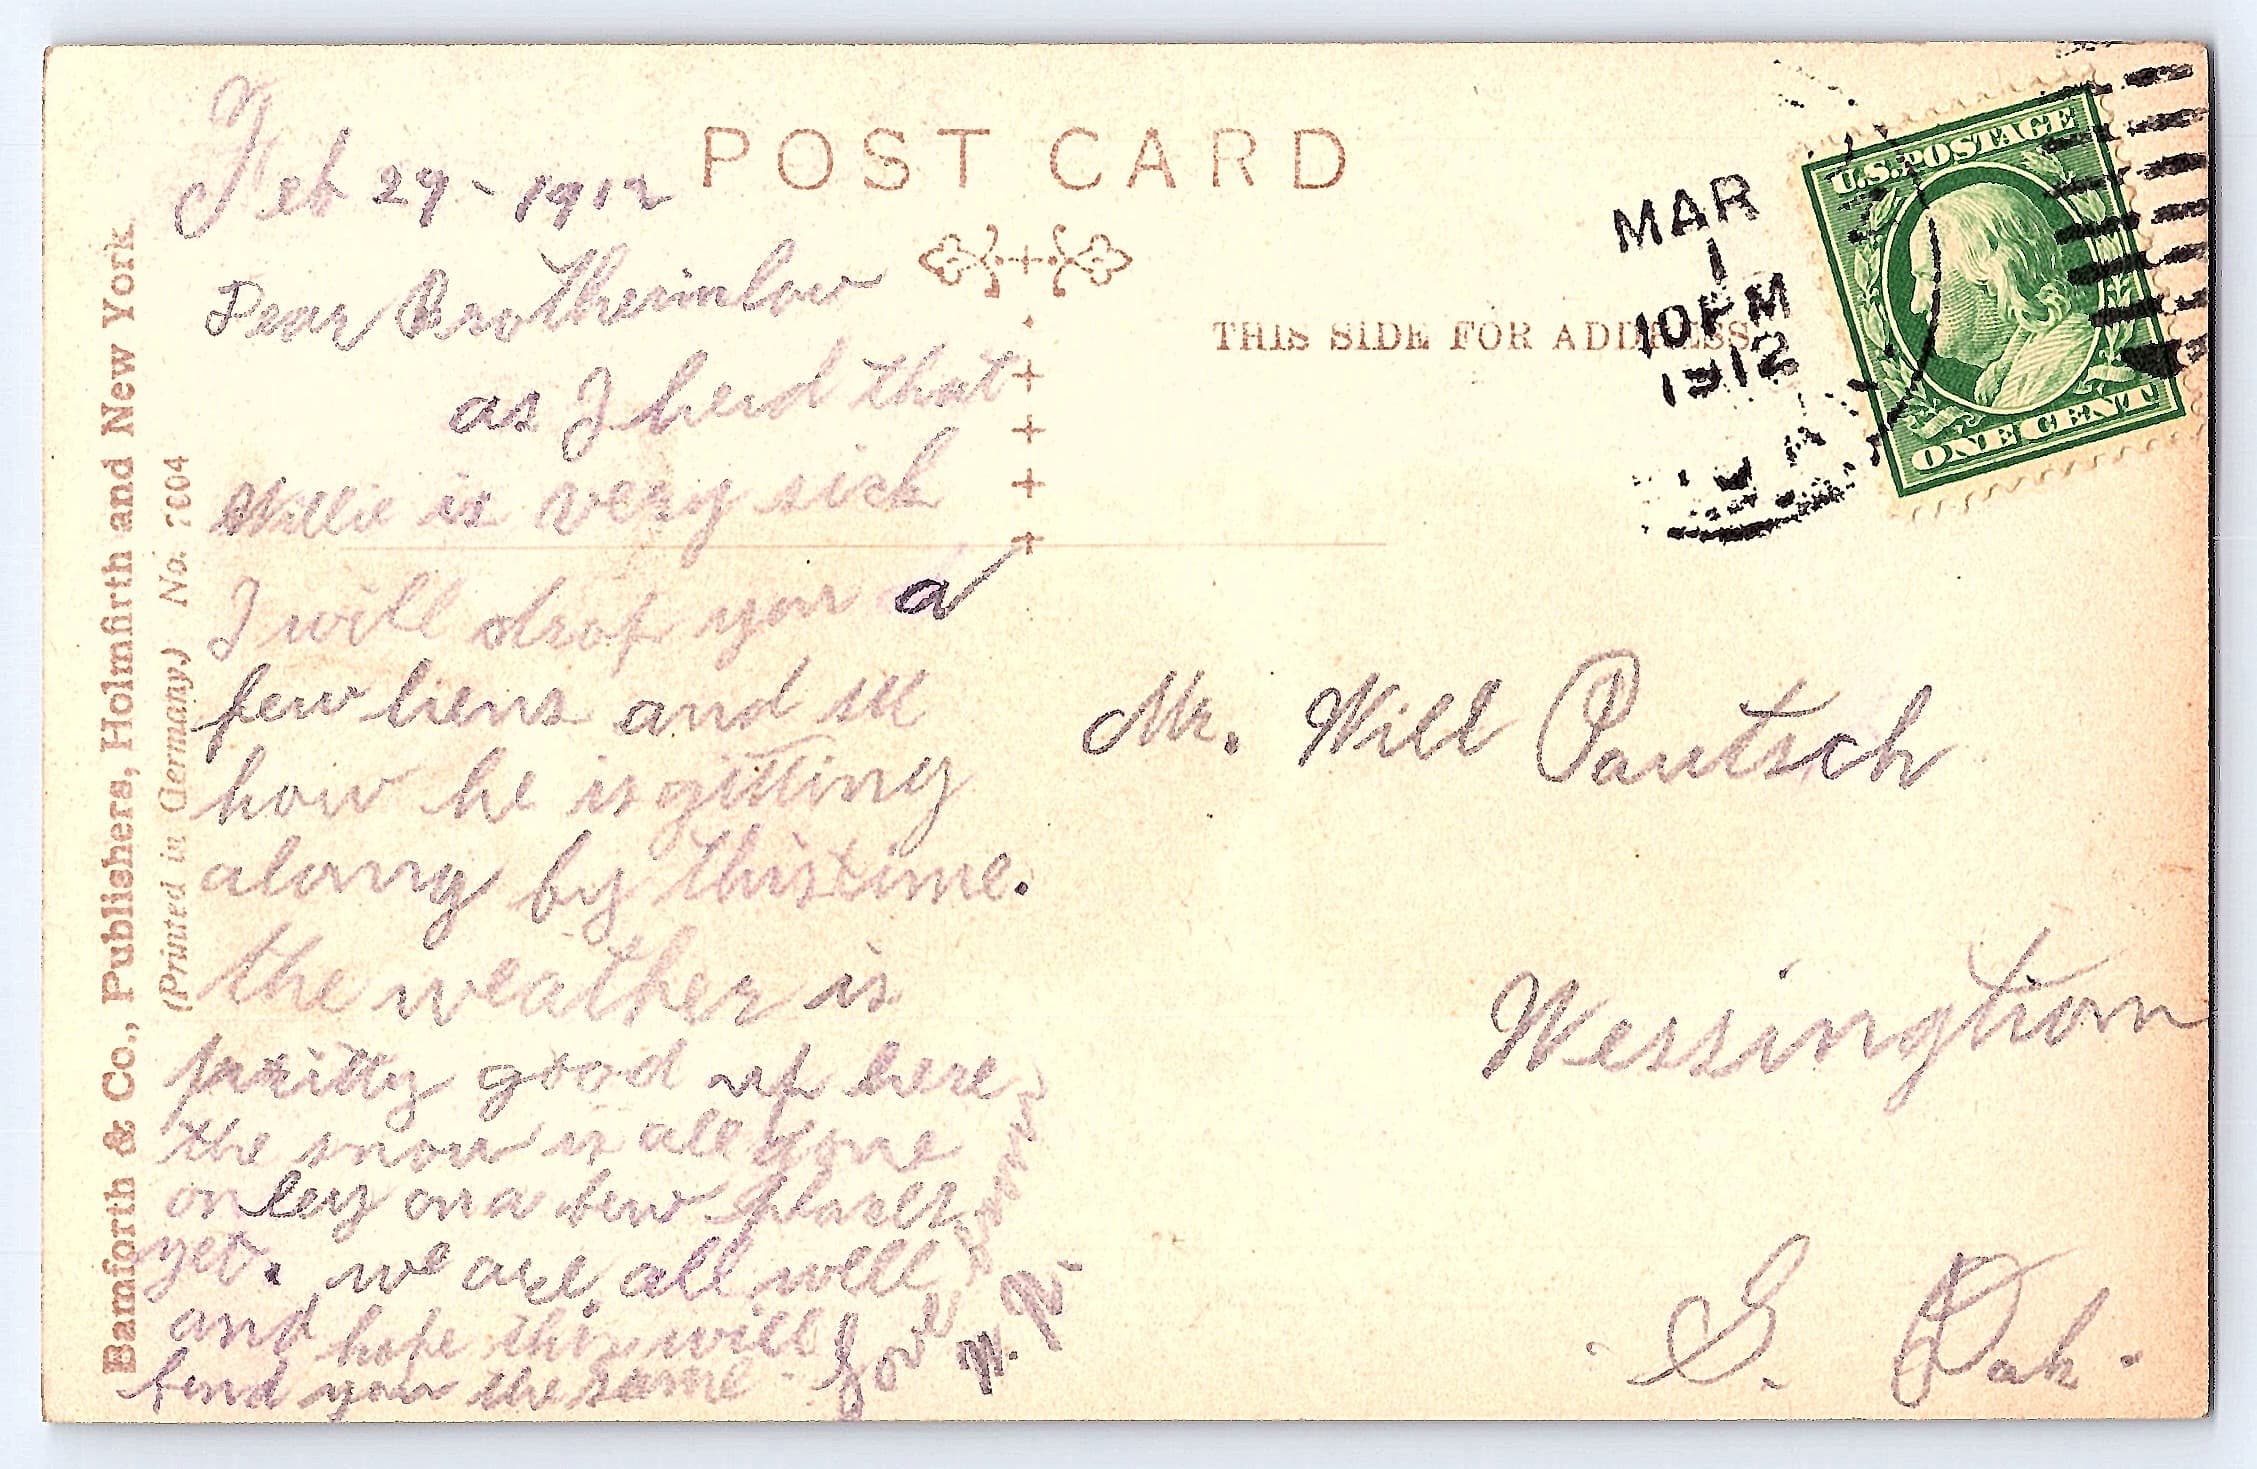 POST CARD
THIS SIDE FOR ADDRESS
Bamforth & Co., Publishers, Holmfirth and New York.
(Printed in Germany.) No. 7004
Feb 29 - 1912
Dear Brotherinlow
as I herd that
Willie is very sick
I will drop you a
few liens and see
how he is gitting
along by this time.
the weather is
pritty good up here
the snow is all gone
onley on a few places
yet. we are all well
and hope this will
find you the same
Love
U.S. POSTAGE
ONE CENT
MAR
1
10 PM
1912
Mr. Will Pautsch
Wessingtion
S. Dak.